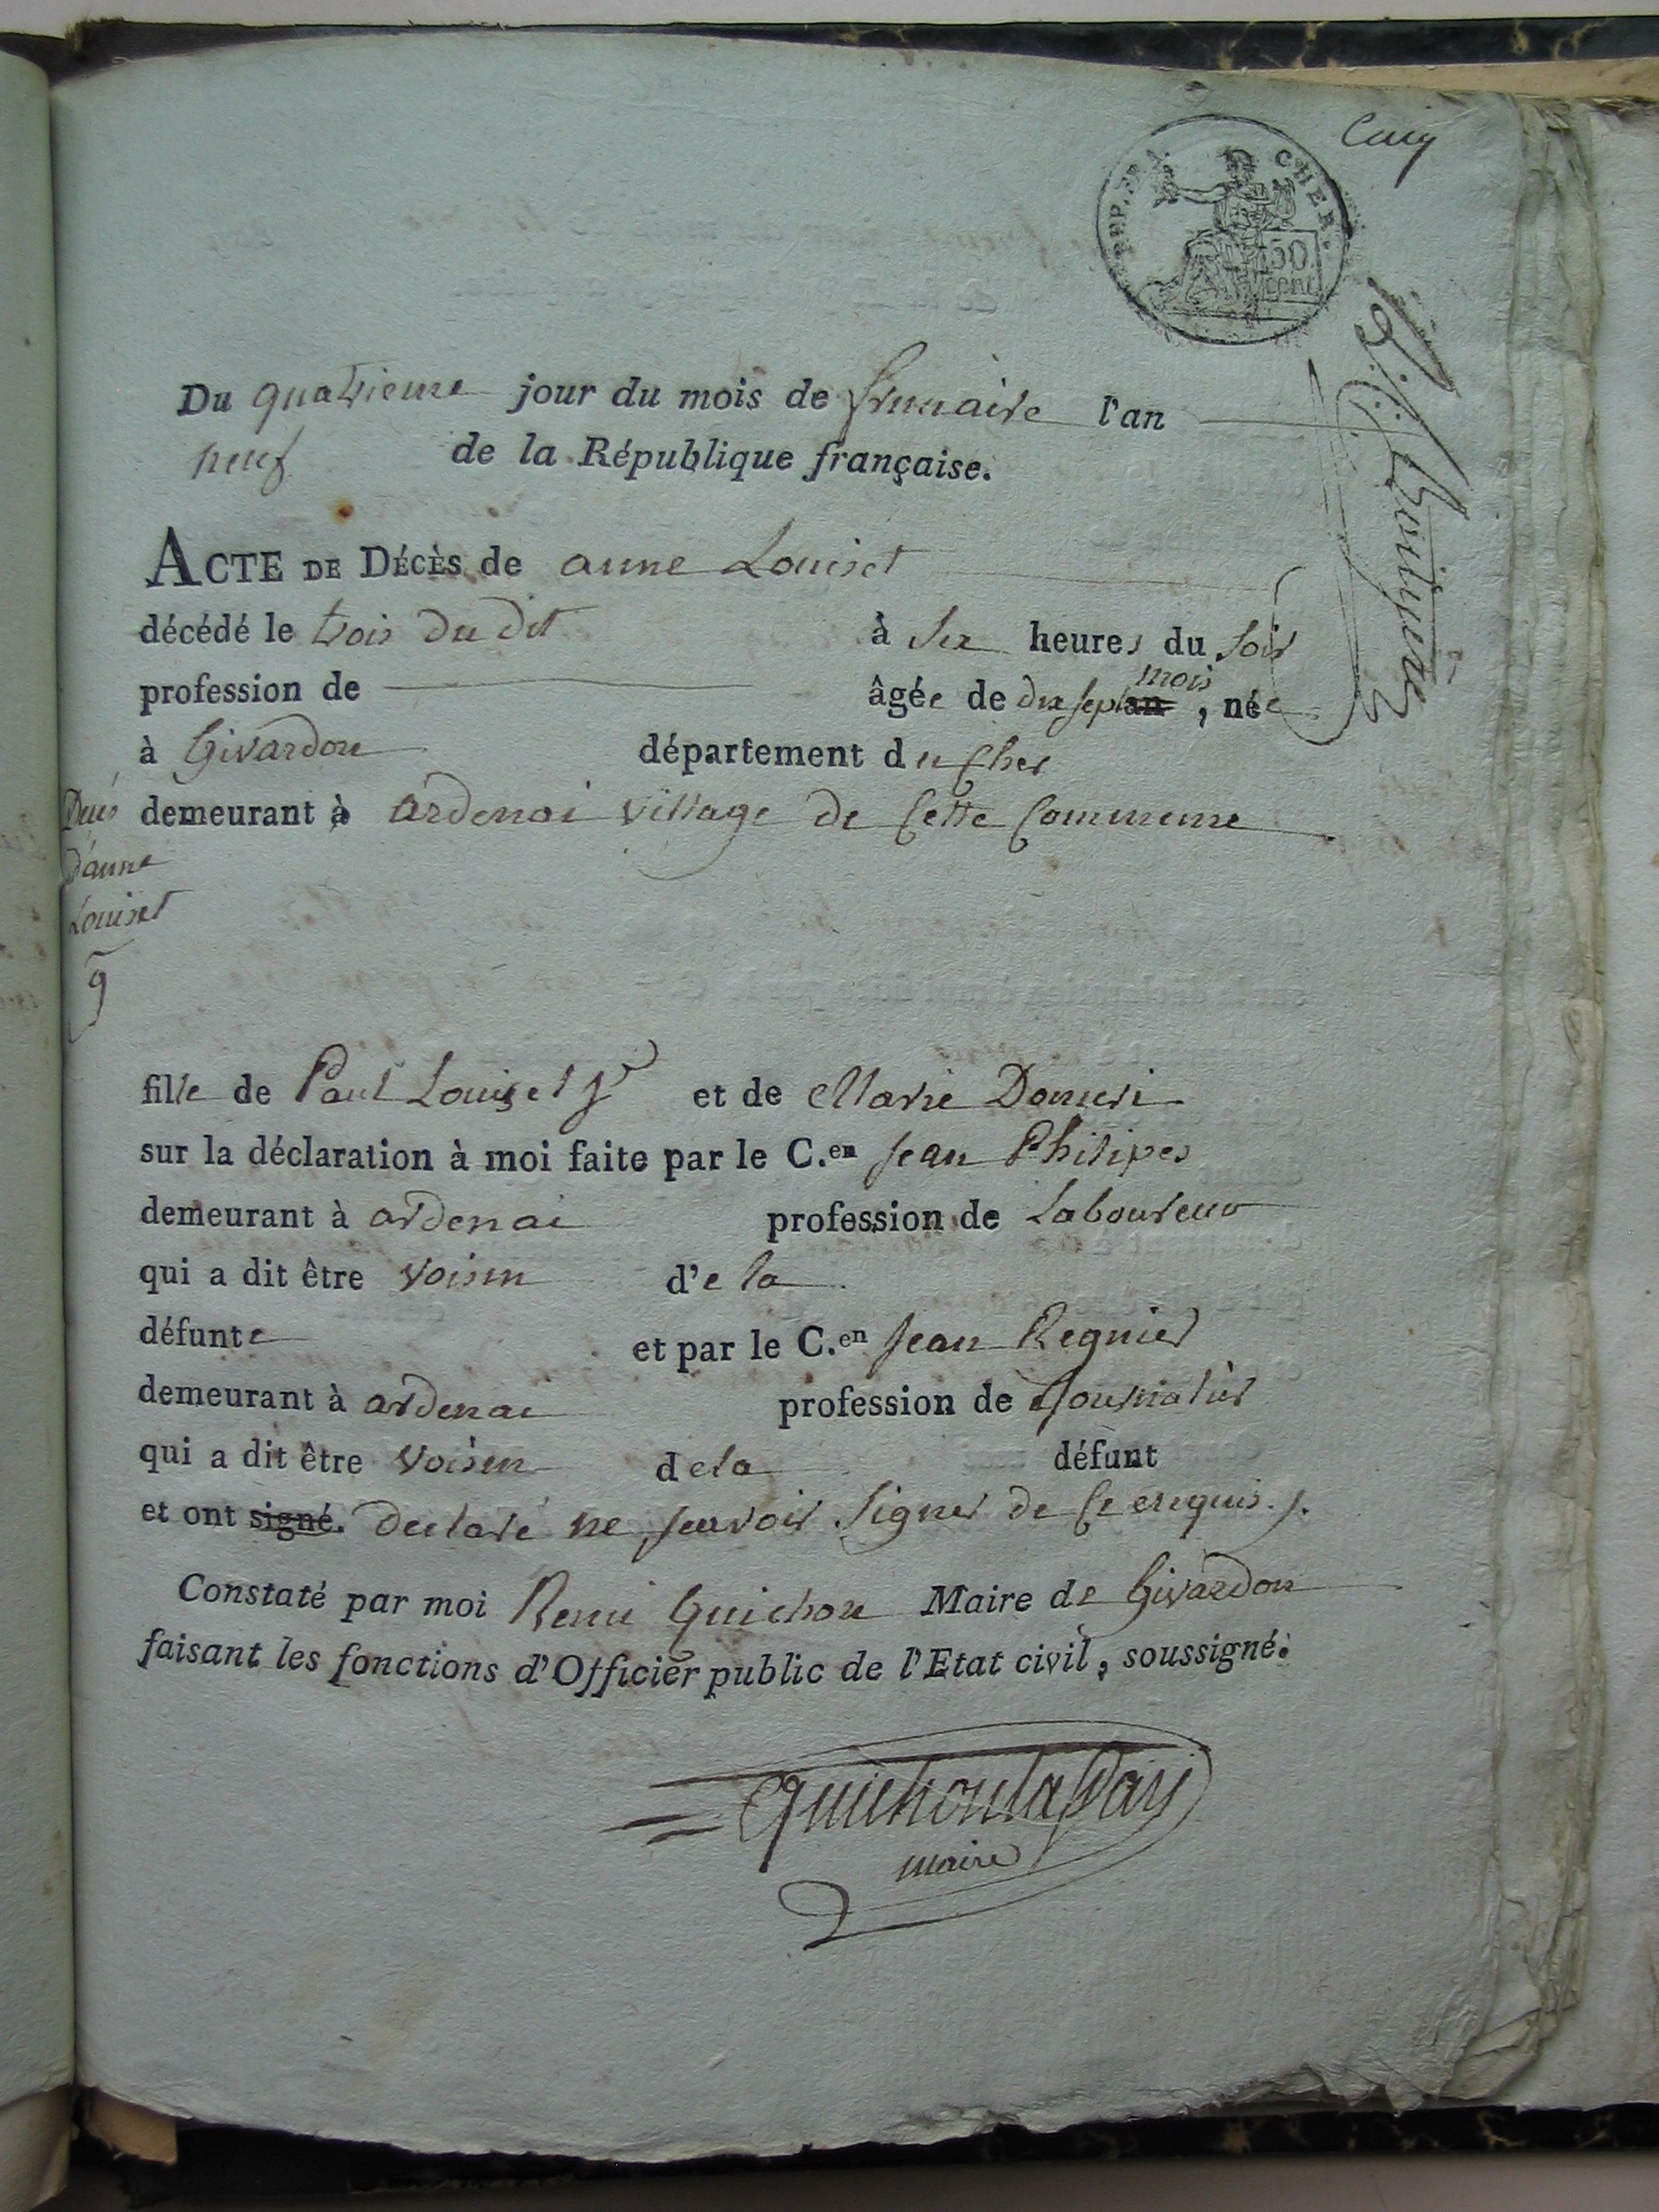 Cinq
REP. FRA. CHER.
50 cent
Du quatrieme jour du mois de frimaire l'an
neuf de la République française.
ACTE DE DÉCÈS de anne Louiset
décédé le trois du dit à six heures du soir
profession de âgée de dix sept mois an, née
à Givardon département du Cher
demeurant à ardenai village de cette commune
Deces
d'anne
Louiset
9
fille de Paul Louiset et de Marie Domeri
sur la déclaration à moi faite par le C.en Jean Philipes
demeurant à ardenai profession de Laboureur
qui a dit être voisin d'e la
défunte et par le C.en Jean Regnier
demeurant à ardenai profession de Journalier
qui a dit être voisin dela défunt
et ont signé. declaré ne scavoir signer de ce enquis
Constaté par moi Remi Guichon Maire de Givardon
faisant les fonctions d'Officier public de l'Etat civil, soussigné.
maire